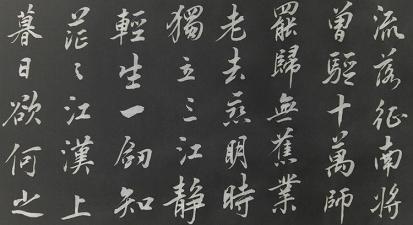 流落征南將
曾驅十萬師
罷歸無舊業
老去戀明時
獨立三江靜
輕生一劒知
茫々江漢上
暮日欲何之